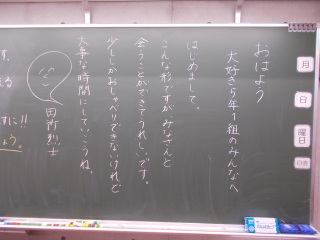 おはよう
大好き5年1組のみんなへ
はじめまして。
こんな形ですが、みなさんと
会うことができてうれしいです。
少ししかおしゃべりできないけれど
大事な時間にしていこうね。
月
日
曜日
日直